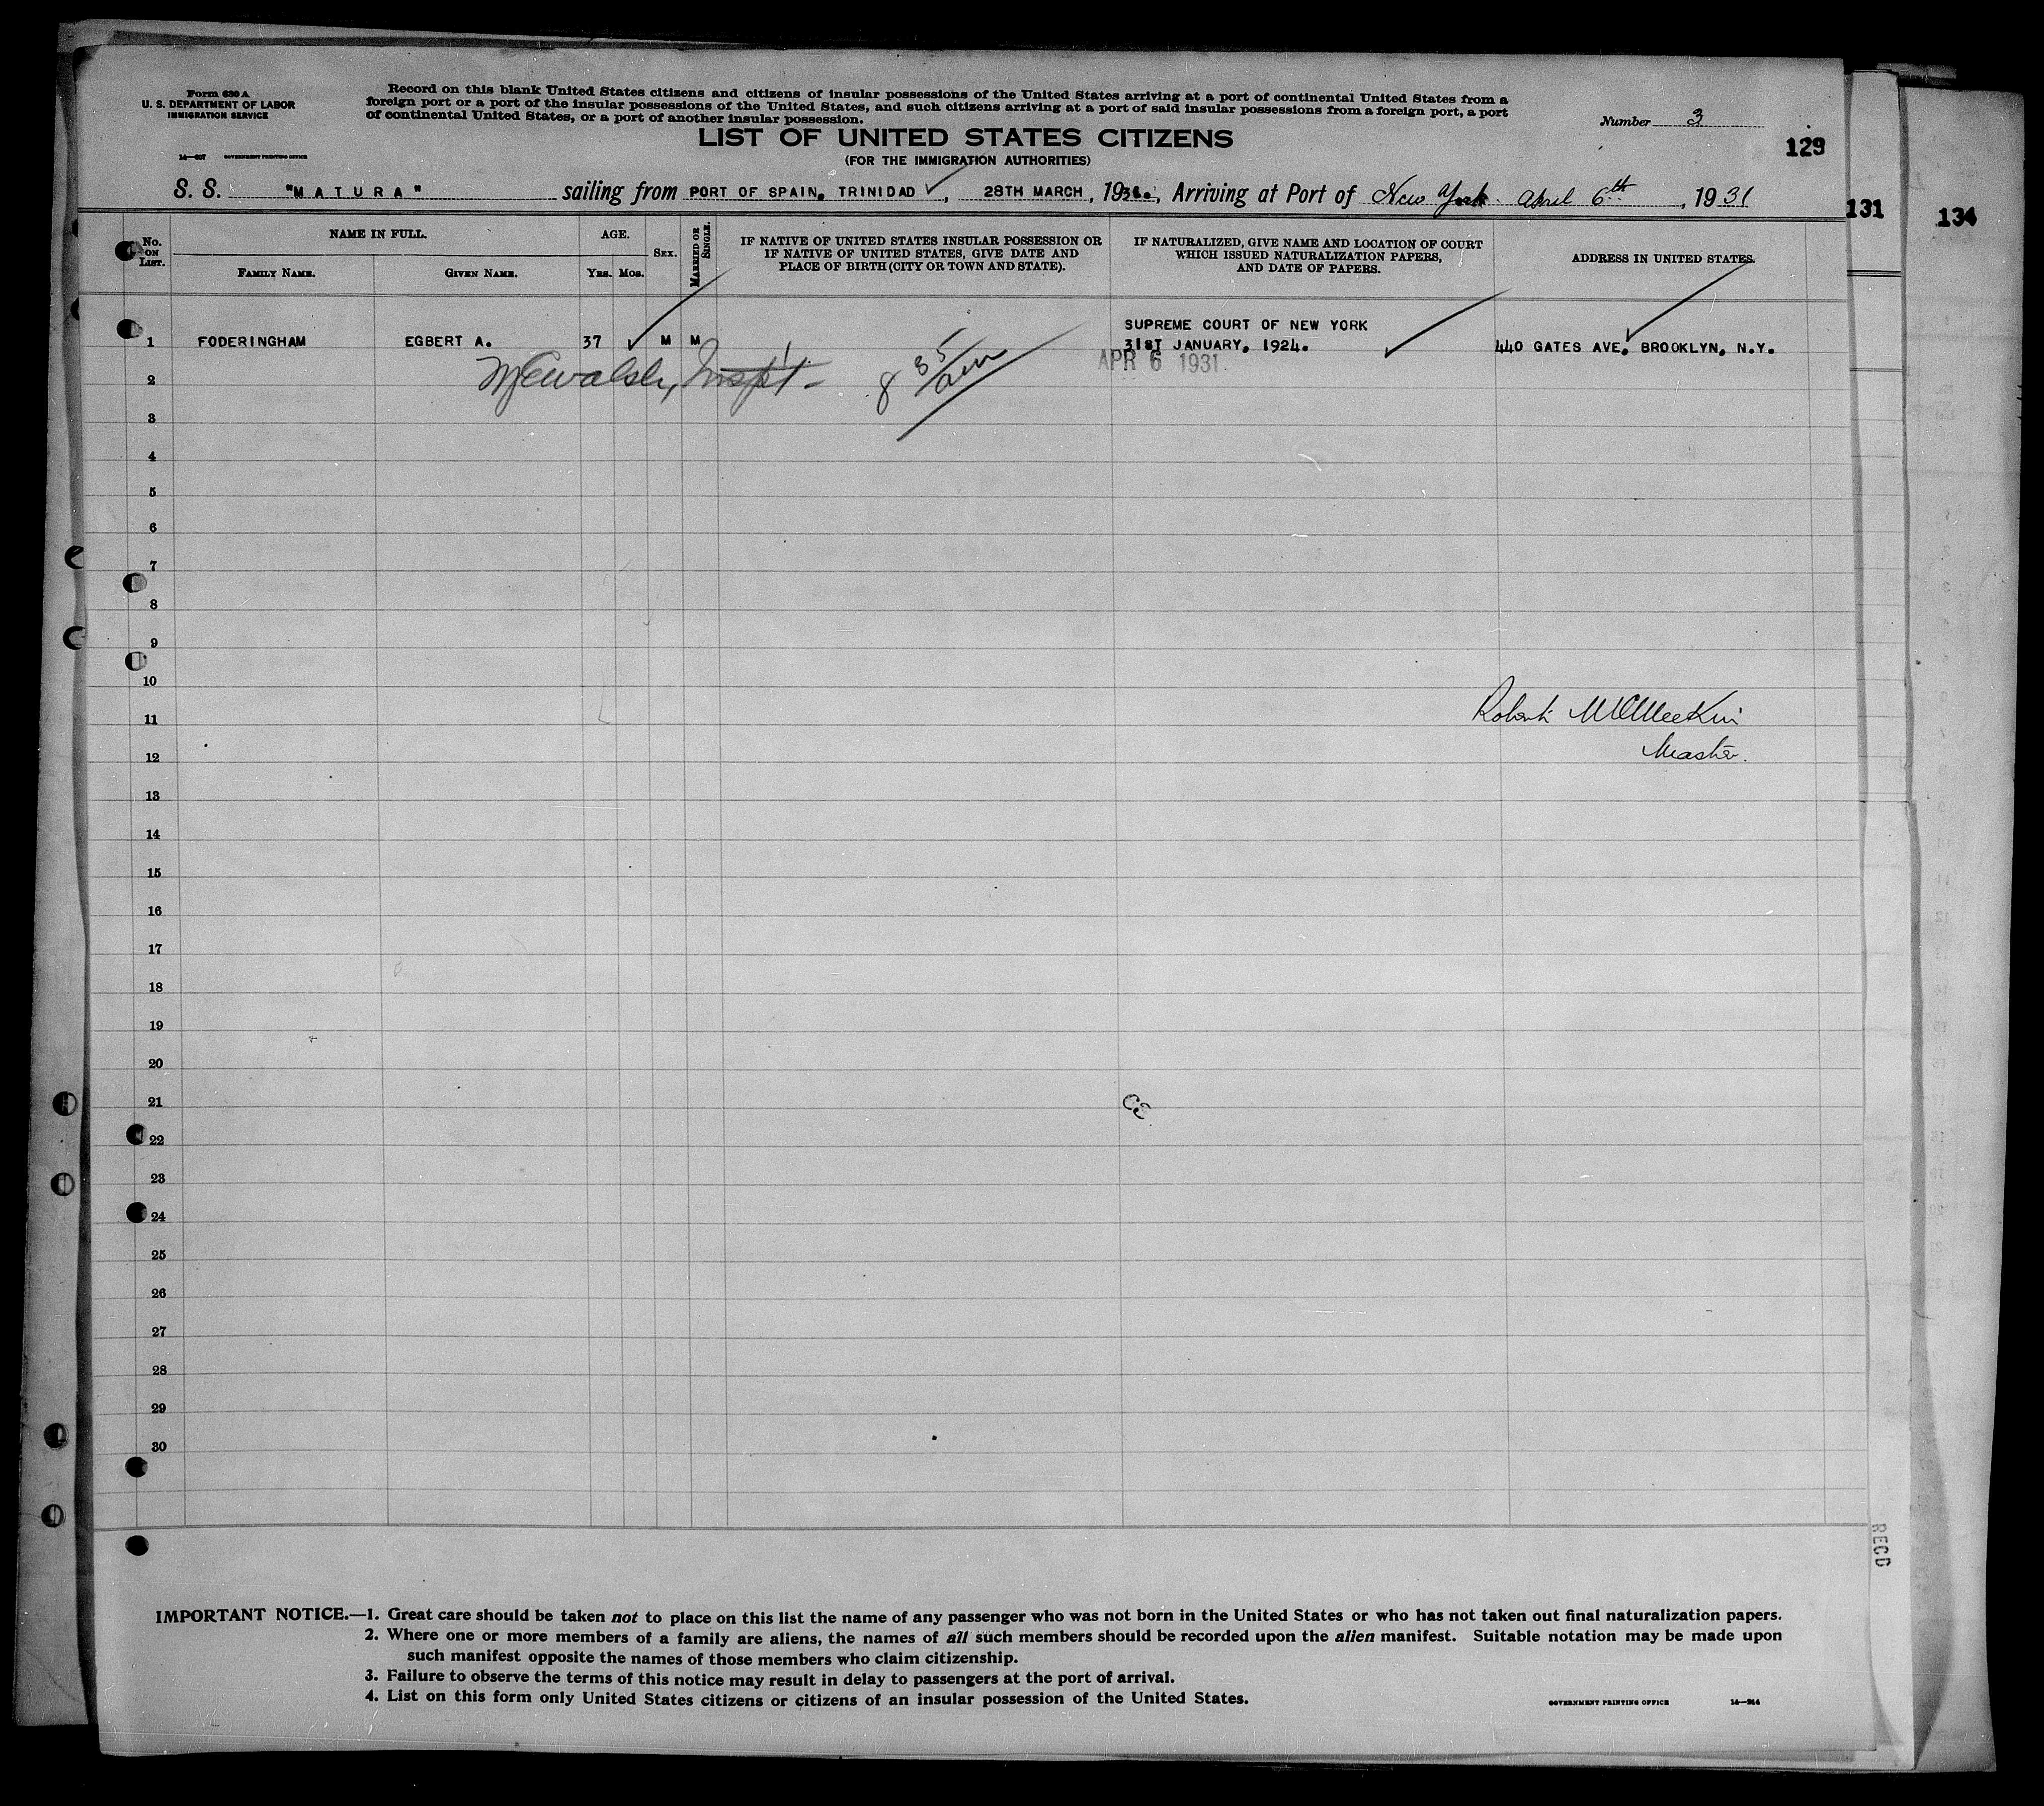 Form 630 A
U. S. DEPARTMENT OF LABOR
IMMIGRATION SERVICE
14—637 GOVERNMENT PRINTING OFFICE
Record on this blank United States citizens and citizens of insular possessions of the United States arriving at a port of continental United States from a
foreign port or a port of the insular possessions of the United States, and such citizens arriving at a port of said insular possessions from a foreign port, a port
of continental United States, or a port of another insular possession.
Number 3
129
LIST OF UNITED STATES CITIZENS
(FOR THE IMMIGRATION AUTHORITIES)
S. S. "MATURA" sailing from PORT OF SPAIN, TRINIDAD, 28TH MARCH, 1931., Arriving at Port of New York April 6th, 1931
131
134
No. ON LIST.
NAME IN FULL.
FAMILY NAME.
GIVEN NAME.
AGE.
YRS. MOS.
SEX.
MARRIED OR SINGLE.
IF NATIVE OF UNITED STATES INSULAR POSSESSION OR
IF NATIVE OF UNITED STATES, GIVE DATE AND
PLACE OF BIRTH (CITY OR TOWN AND STATE).
IF NATURALIZED, GIVE NAME AND LOCATION OF COURT
WHICH ISSUED NATURALIZATION PAPERS,
AND DATE OF PAPERS.
ADDRESS IN UNITED STATES.
SUPREME COURT OF NEW YORK
1 FODERINGHAM EGBERT A. 37 M M 31ST JANUARY, 1924. 440 GATES AVE. BROOKLYN, N.Y.
APR 6 1931
2 Walsh, Inspt- 8 35 am
3
4
5
6
7
8
9
10
11 Robert McMeekin
12 Master.
13
14
15
16
17
18
19
20
21
22
23
24
25
26
27
28
29
30
RECD
IMPORTANT NOTICE.—1. Great care should be taken not to place on this list the name of any passenger who was not born in the United States or who has not taken out final naturalization papers.
2. Where one or more members of a family are aliens, the names of all such members should be recorded upon the alien manifest. Suitable notation may be made upon
such manifest opposite the names of those members who claim citizenship.
3. Failure to observe the terms of this notice may result in delay to passengers at the port of arrival.
4. List on this form only United States citizens or citizens of an insular possession of the United States.
GOVERNMENT PRINTING OFFICE 14—214